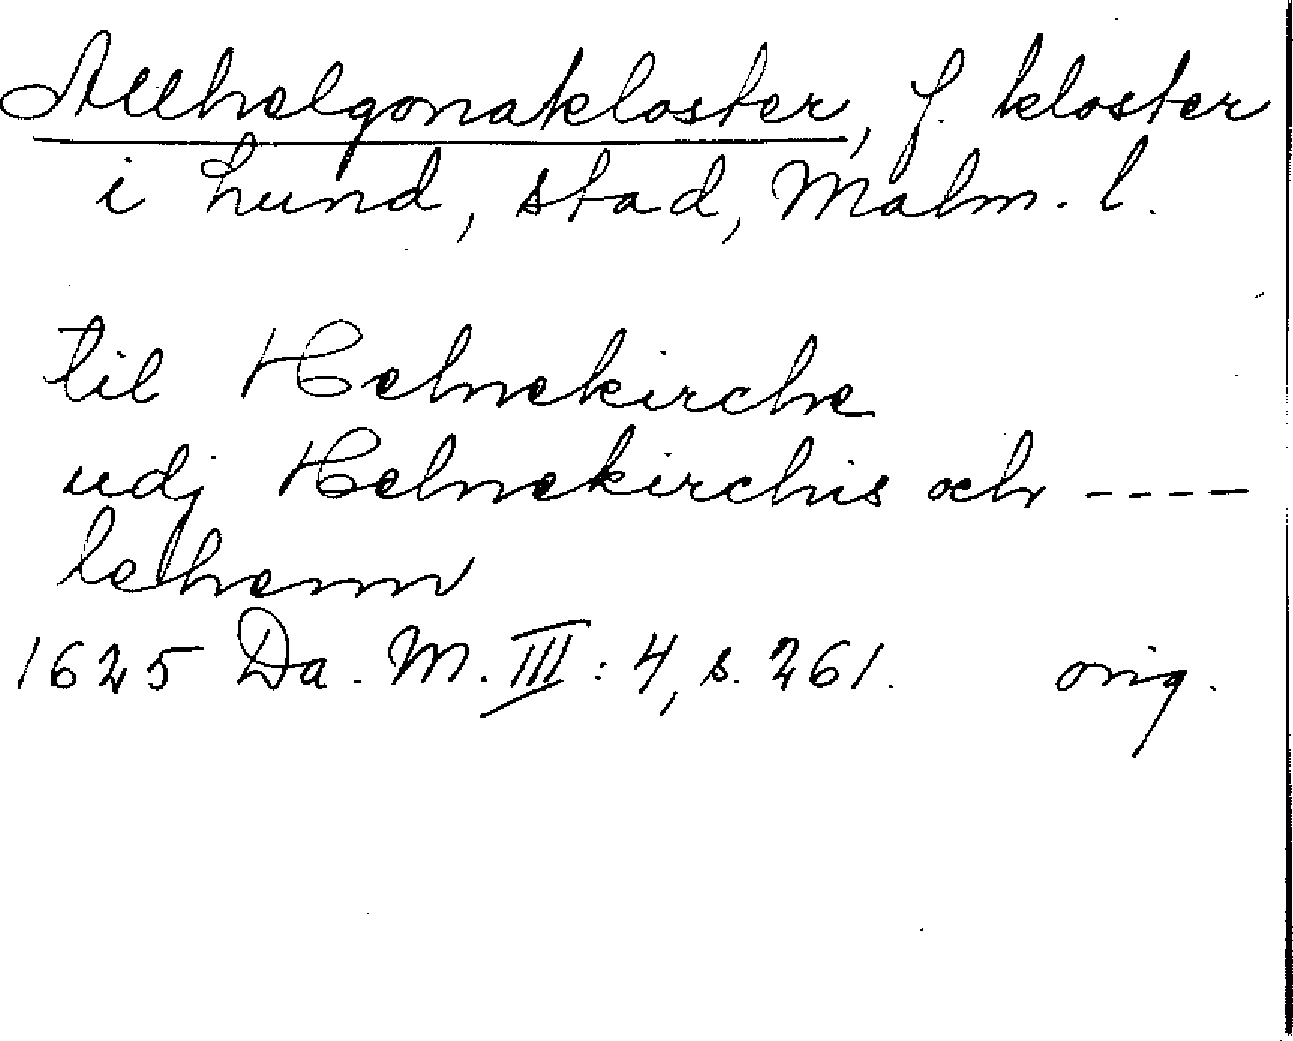 Allhelgonakloster, f. kloster
i Lund, stad, Malm. l.
til Helnekirche
udj Helnekirchis och ----
lehenn
1625 Da. M. III: 4, s. 261. orig.